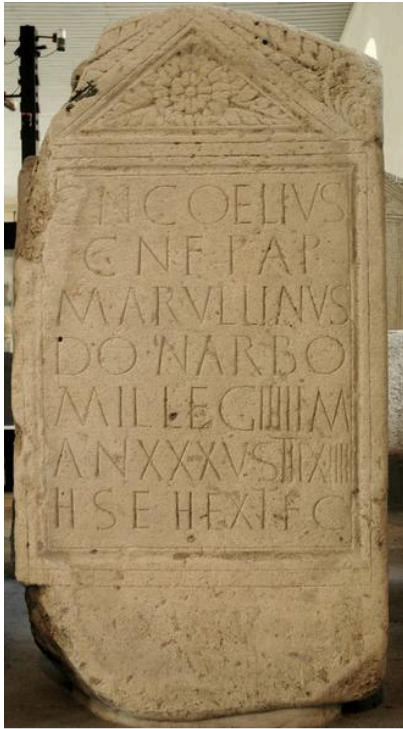 CN COELIVS
CN F PAP
MARVLLINVS
DO NARBO
MIL LEG IIIII M
AN XXXV STI XIIII
H S E H EX T F C